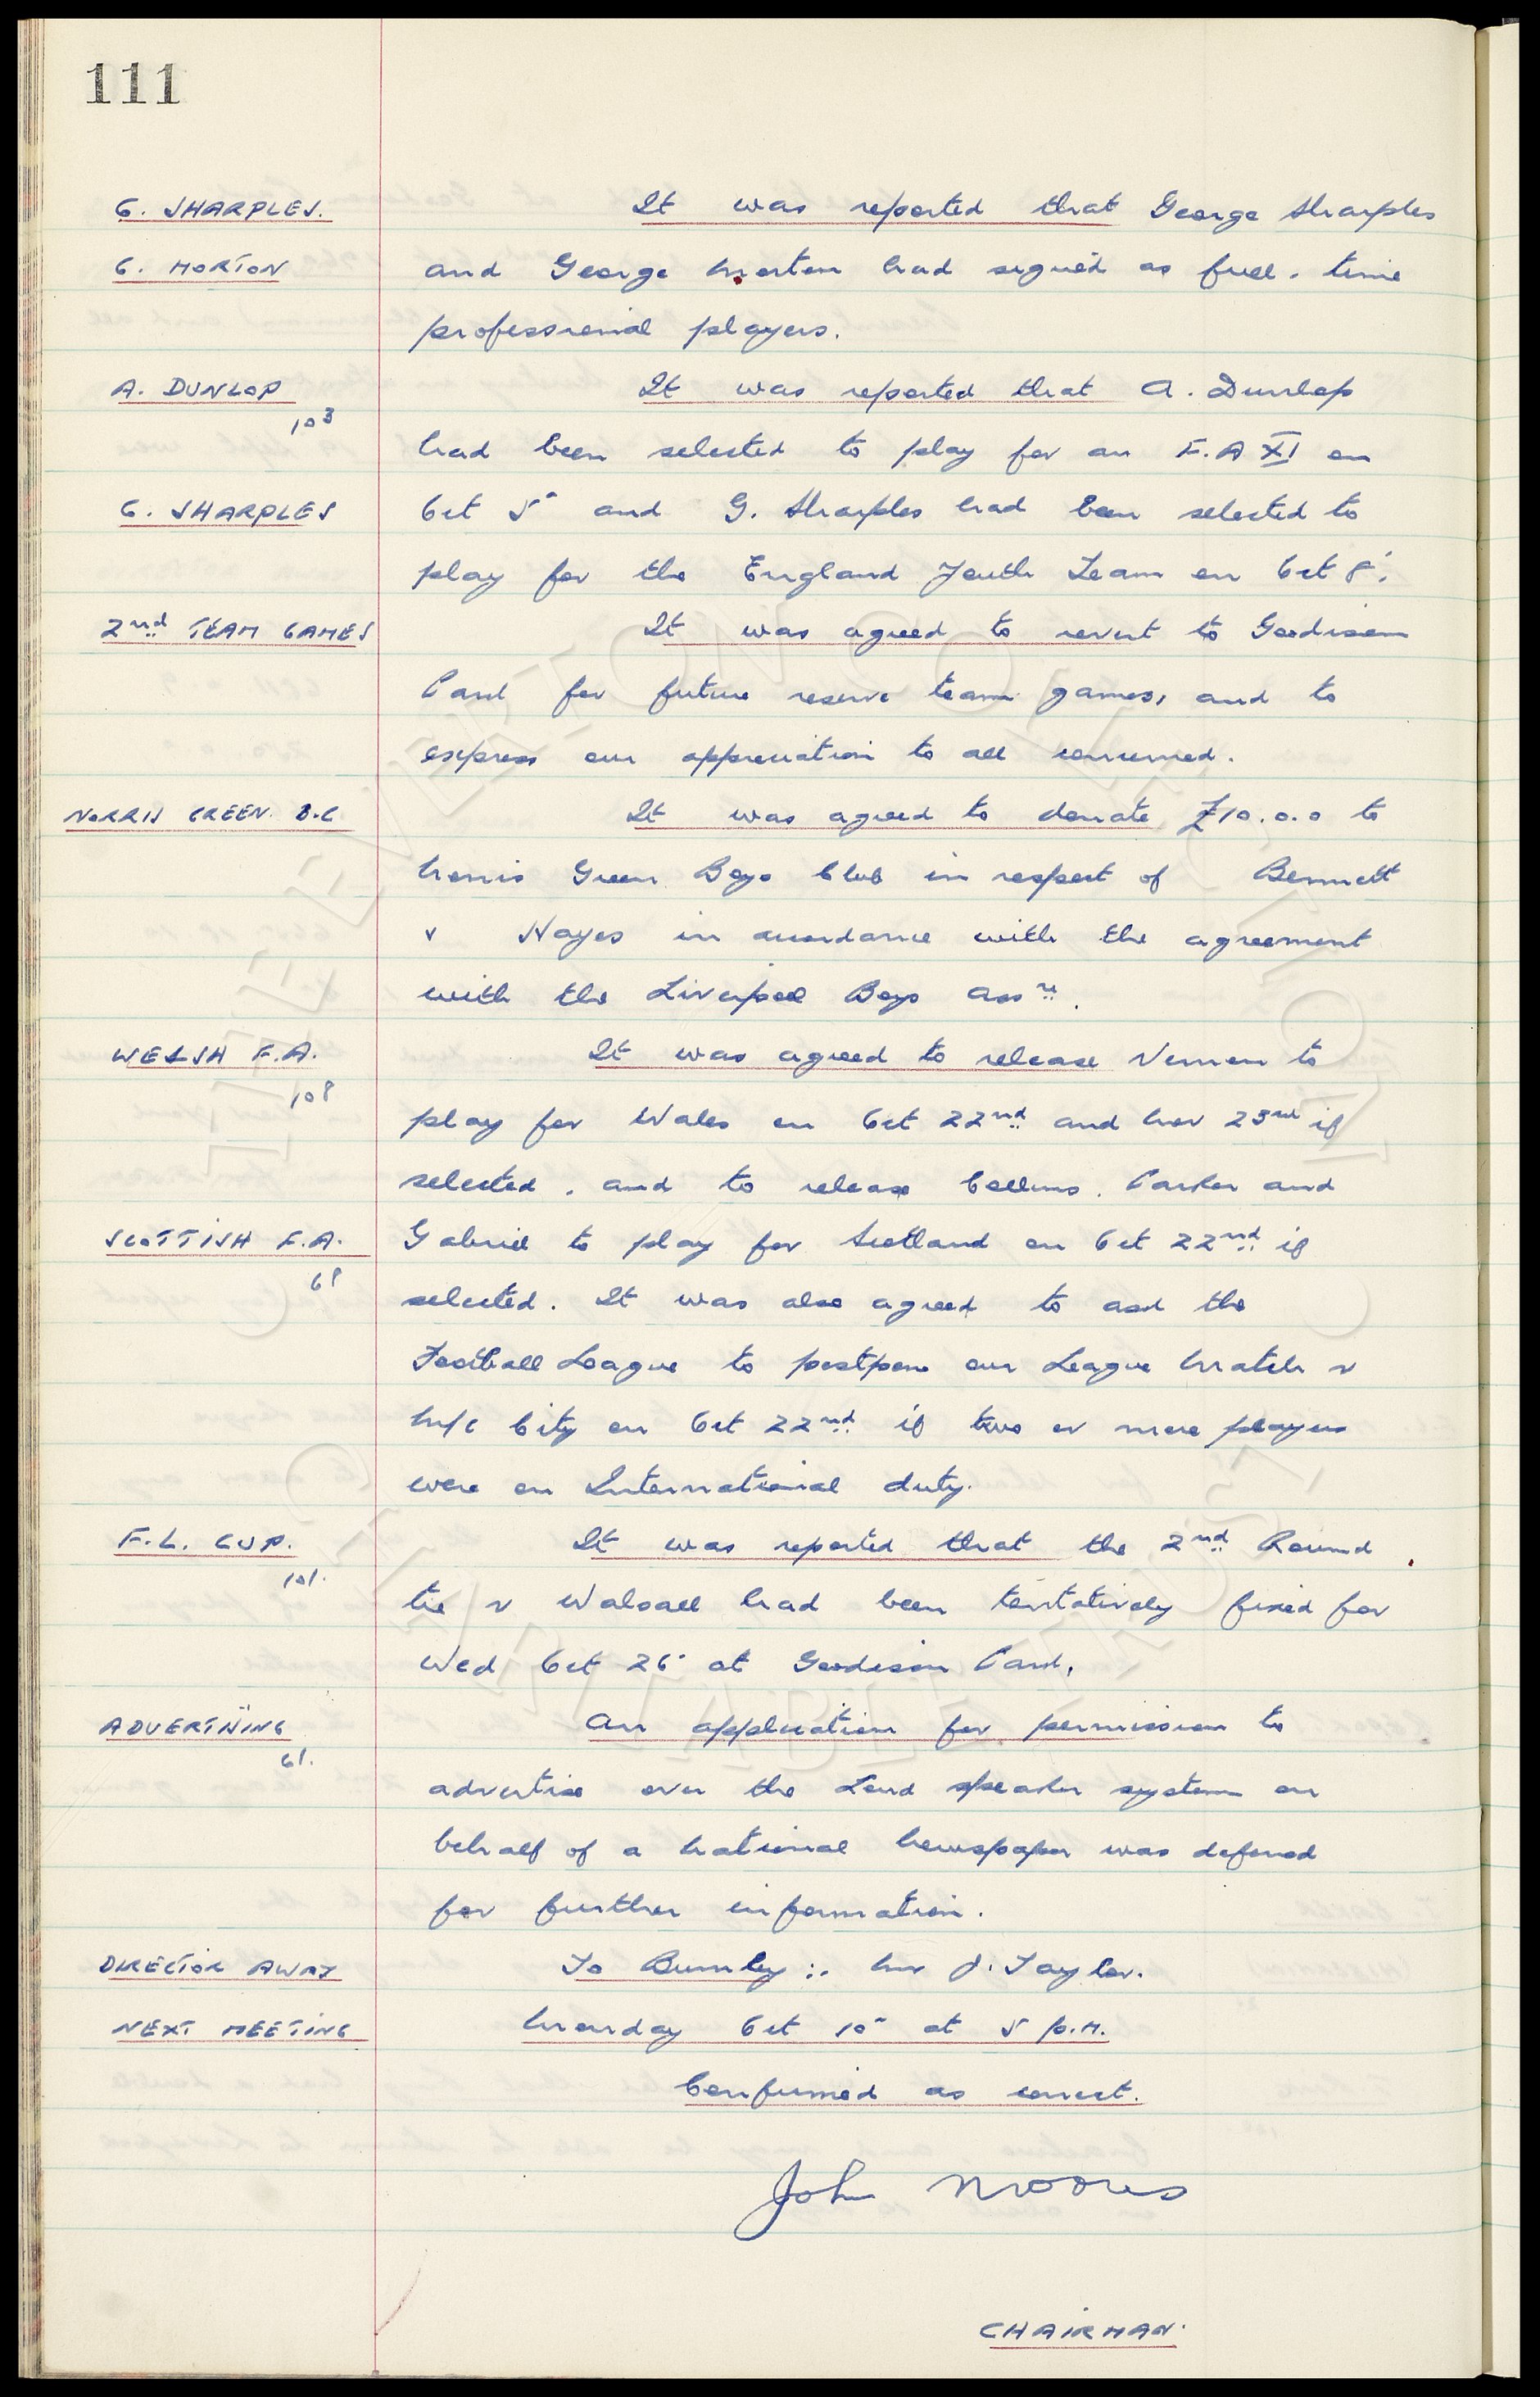 111
G. SHARPLES. It was reported that George Sharples
G. MORTON and George Morton had signed as full-time
professional players.
A. DUNLOP It was reported that A. Dunlop
103
had been selected to play for an F.A XI on
G. SHARPLES Oct 5" and G. Sharples had been selected to
play for the England Youth Team on Oct 8".
2nd TEAM GAMES It was agreed to revert to Goodison
Park for future reserve team games, and to
express our appreciation to all concerned.
NORRIS GREEN. B.C It was agreed to donate £10.0.0 to
Norris Green Boys Club in respect of Bennett
v Hayes in accordance with the agreement
with the Liverpool Boys Assn.
WELSH F.A. It was agreed to release Vernon to
108
play for Wales on Oct 22nd and Nov 23rd if
selected, and to release Collins, Parker and
SCOTTISH F.A. Gabriel to play for Scotland on Oct 22nd if
68
selected. It was also agreed to ask the
Football League to postpone our League Match v
M/c City on Oct 22nd if two or more players
were on International duty.
F.L. CUP. It was reported that the 2nd Round
101.
tie v Walsall had been tentatively fixed for
Wed Oct 26" at Goodison Park.
ADVERTISING An application for permission to
61.
advertise over the Loud speaker system on
behalf of a National Newspaper was deferred
for further information.
DIRECTOR AWAY To Burnley :. Mr J. Taylor.
NEXT MEETING Monday Oct 10" at 5 p.m.
Confirmed as correct.
John Moores
CHAIRMAN.